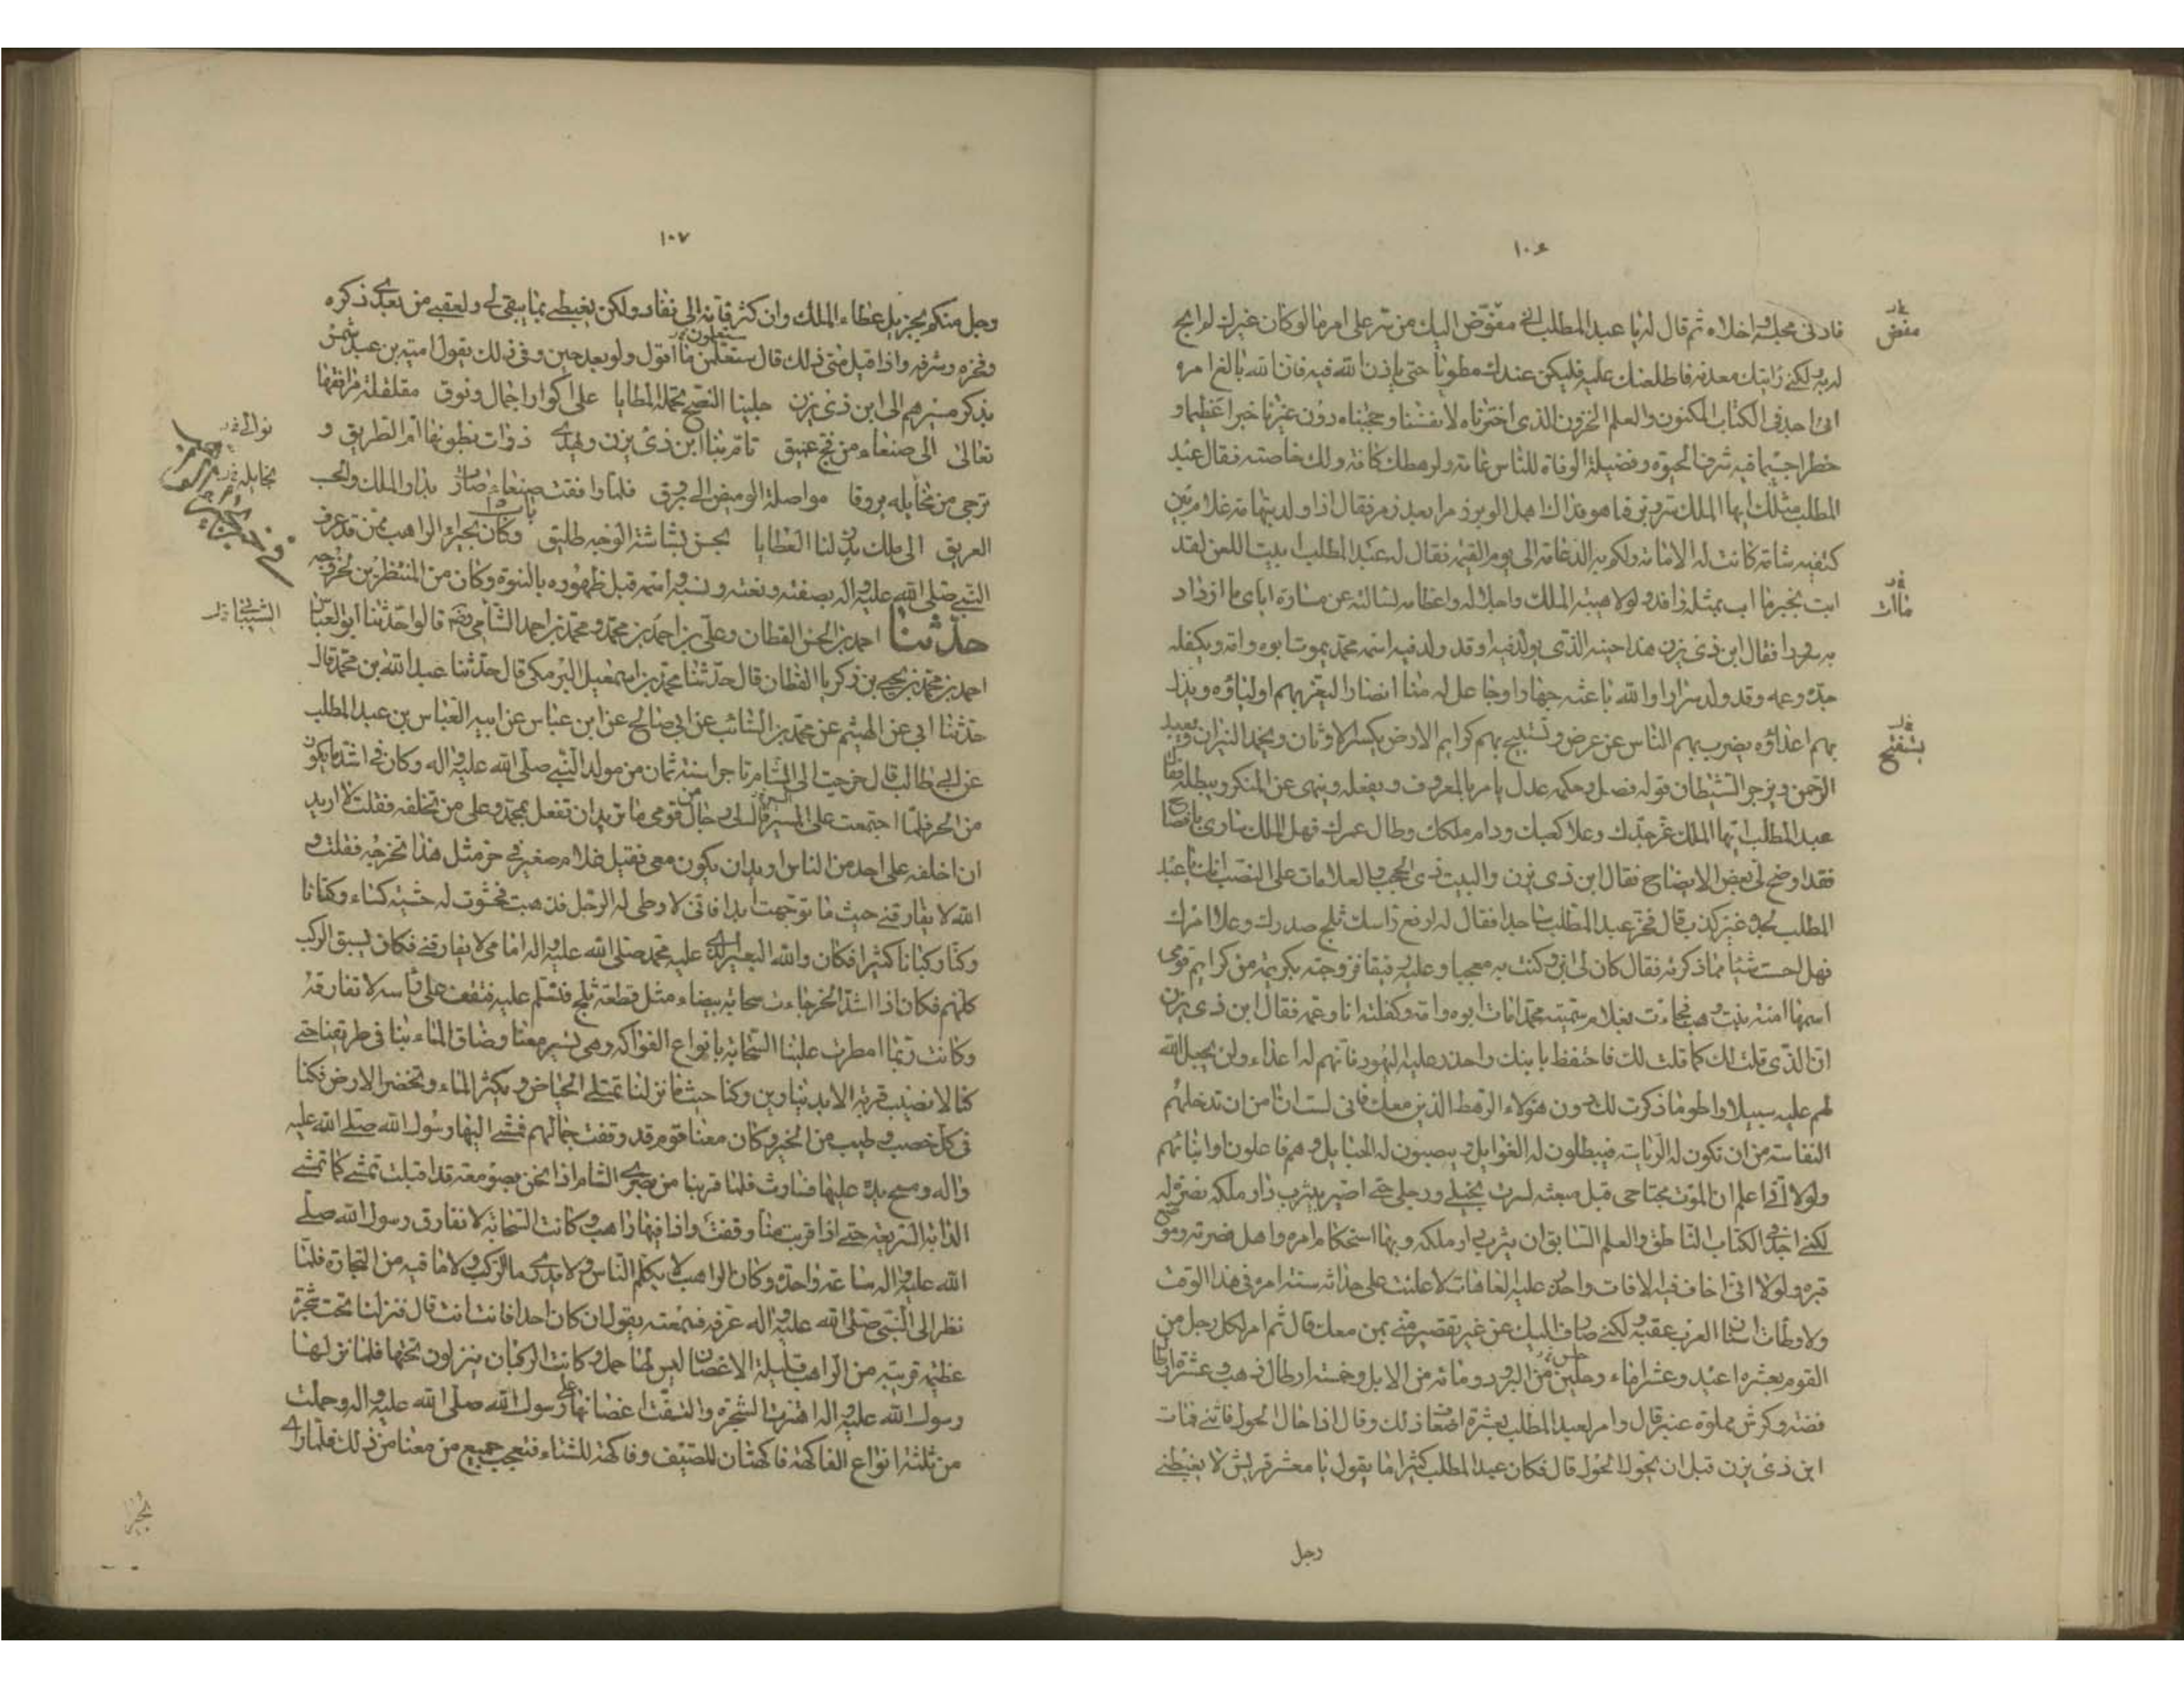 ١٠٦
فادنى مجلسه واخلاه ثم قال له يا عبد المطلب اني مفوض اليك من سر علمي امرا ما لو كان غيرك لم ابح
له به ولكني رايتك معدنه فاطلعتك عليه فليكن عندك مطويا حتى ياذن الله فيه فان الله بالغ امره
اني اجد في الكتاب المكنون والعلم المخزون الذي اخترناه لانفسنا وحجبناه دون غيرنا خبرا عظيما و
خطرا جسيما فيه شرف الحيوة وفضيلة الوفاة للناس عامة ولرهطك كافة ولك خاصته فقال عبد
المطلب مثلك ايها الملك سر وبر فما هو فداك اهل الوبر زمرا بعد زمر فقال اذا ولد بتهامة غلام بين
كتفيه شامة كانت له الامامة ولكم به الدعامة الى يوم القيمة فقال له عبد المطلب ابيت اللعن لقد
ابت بخير ما اب بمثله وافد ولولا هيبة الملك واجلاله واعظامه لسالته عن مساره اياي ما ازداد
به سرورا فقال ابن ذي يزن هذا حينه الذي يولد فيه او قد ولد فيه اسمه محمد يموت ابوه وامه ويكفله
جده وعمه وقد ولد سرارا والله باعثه جهارا وجاعل له منا انصارا ليعز بهم اولياؤه ويذل
بهم اعداؤه يضرب بهم الناس عن عرض وتستبيح بهم كرايم الارض يكسر الاوثان ويخمد النيران ويعبد
الرحمن ويزجر الشيطان قوله فصل وحكمه عدل يامر بالمعروف ويفعله وينهى عن المنكر ويبطله فقال
عبد المطلب ايها الملك عز جدك وعلا كعبك ودام ملكك وطال عمرك فهل الملك ساري بافصاح
فقد اوضح لي بعض الايضاح فقال ابن ذي يزن والبيت ذي الحجب والعلامات على النصب انك يا عبد
المطلب لجده غير كذب قال فخر عبد المطلب ساجدا فقال له ارفع راسك ثلج صدرك وعلا امرك
فهل احسست شيئا مما ذكرته فقال كان لي ابن وكنت به معجبا وعليه رفيقا فزوجته بكريمة من كرايم قومي
اسمها امنة بنت وهب فجاءت بغلام سميته محمدا مات ابوه وامه وكفلته انا وعمه فقال ابن ذي يزن
ان الذي قلت لك كما قلت لك فاحتفظ بابنك واحذر عليه اليهود فانهم له اعداء ولن يجعل الله
لهم عليه سبيلا واطو ما ذكرت لك دون هؤلاء الرهط الذين معك فاني لست امن ان تدخلهم
النفاسة من ان تكون له الرياسة فيبطلون له الغوايل وينصبون له الحبايل وهم فاعلون او ابنائهم
ولولا اني اعلم ان الموت مجتاحي قبل مبعثه لسرت بخيلي ورجلي حتى اصير بيثرب دار ملكه نصرة له
لكني اجد في الكتاب الناطق والعلم السابق ان يثرب دار ملكه وبها استحكام امره واهل نصرته وموضع
قبره ولولا اني اخاف فيه الافات واحذر عليه العاهات لاعلنت على حداثة سنه امره في هذا الوقت
ولاوطات اسنان العرب عقبه ولكني صارف اليك عن غير تقصير مني بمن معك قال ثم امر لكل رجل من
القوم بعشرة اعبد وعشر اماء وحلتين من البرود ومائة من الابل وخمسة ارطال ذهب وعشرة ارطال
فضة وكرش مملوة عنبر قال وامر لعبد المطلب بعشرة اضعاف ذلك وقال اذا حال الحول فاتني فمات
ابن ذي يزن قبل ان يحول الحول قال فكان عبد المطلب كثيرا ما يقول يا معشر قريش لا يغبطني
رجل
١٠٧
رجل منكم بجزيل عطاء الملك وان كثر فانه الى نفاد ولكن يغبطني بما يبقى لي ولعقبي من بعدي ذكره
وفخره وشرفه واذا قيل متى ذلك قال ستعلمن ما اقول ولو بعد حين وفي ذلك يقول امية بن عبد شمس
يذكر مسيرهم الى ابن ذي يزن جلبنا النصح تحمله المطايا على اكوار اجمال ونوق مقلفلة مرافقها
تعالى الى صنعاء من فج عميق تام بنا ابن ذي يزن وتهدي ذوات بطونها ام الطريق و
ترجي من مخايله بروقا مواصلة الوميض الى بروق فلما وافقت صنعاء صارت بدار الملك والحسب
العريق الى ملك يدر لنا العطايا بحسن بشاشة الوجه طليق وكان بحيراء الراهب ممن قد عرف
النبي صلى الله عليه واله بصفته ونعته ونسبه واسمه قبل ظهوره بالنبوة وكان من المنتظرين لخروجه
حدثنا احمد بن الحسن القطان وعلي بن احمد بن محمد ومحمد بن احمد الشامي رضه قالوا حدثنا ابو العباس
احمد بن محمد بن يحيى بن زكريا القطان قال حدثنا محمد بن اسمعيل البرمكي قال حدثنا عبد الله بن محمد قال
حدثنا ابي عن الهيثم عن محمد بن السائب عن ابي صالح عن ابن عباس عن ابيه العباس بن عبد المطلب
عن ابي طالب قال خرجت الى الشام تاجرا سنة ثمان من مولد النبي صلى الله عليه واله وكان في اشد ما يكون
من الحر فلما اجتمعت على المسير قال لي رجال من قومي ما تريد ان تفعل بمحمد وعلى من تخلفه فقلت لا اريد
ان اخلفه على احد من الناس اريد ان يكون معي فقيل غلام صغير في حر مثل هذا تخرجه فقلت و
الله لا يفارقني حيث ما توجهت ابدا فاني لاوطي له الرحل فذهبت فحشوت له حشية كساء وكتانا
وكنا ركبانا كثيرا فكان والله البعير الذي عليه محمد صلى الله عليه واله امامي لا يفارقني فكان يسبق الركب
كلهم فكان اذا اشتد الحر جاءت سحابة بيضاء مثل قطعة ثلج فتسلم عليه فتقف على راسه لا تفارقه
وكانت ربما امطرت علينا السحابة بانواع الفواكه وهي تسير معنا وضاق الماء بنا في طريقنا حتى
كنا لا نصيب قربة الا بدينارين وكنا حيث ما نزلنا تمتلي الحياض ويكثر الماء وتخضر الارض فكنا
في كل خصب وطيب من الخير وكان معنا قوم قد وقفت جمالهم فمشى اليها رسول الله صلى الله عليه
واله ومسح يده عليها فسارت فلما قربنا من بصرى الشام اذا نحن بصومعة قد اقبلت تمشي كما تمشي
الدابة السريعة حتى اذا قربت منا وقفت واذا فيها راهب وكانت السحابة لا تفارق رسول الله صلى
الله عليه واله ساعة واحدة وكان الراهب لا يكلم الناس ولا يدري ما الركب ولا ما فيه من التجارة فلما
نظر الى النبي صلى الله عليه واله عرفه فسمعته يقول ان كان احد فانت انت قال فنزلنا تحت شجرة
عظيمة قريبة من الراهب قليلة الاغصان ليس لها حمل وكانت الركبان ينزلون تحتها فلما نزلها
رسول الله عليه واله اهتزت الشجرة والتفت اغصانها على رسول الله صلى الله عليه واله وحملت
من ثلثة انواع الفاكهة فاكهتان للصيف وفاكهة للشتاء فتعجب جميع من معنا من ذلك فلما راى